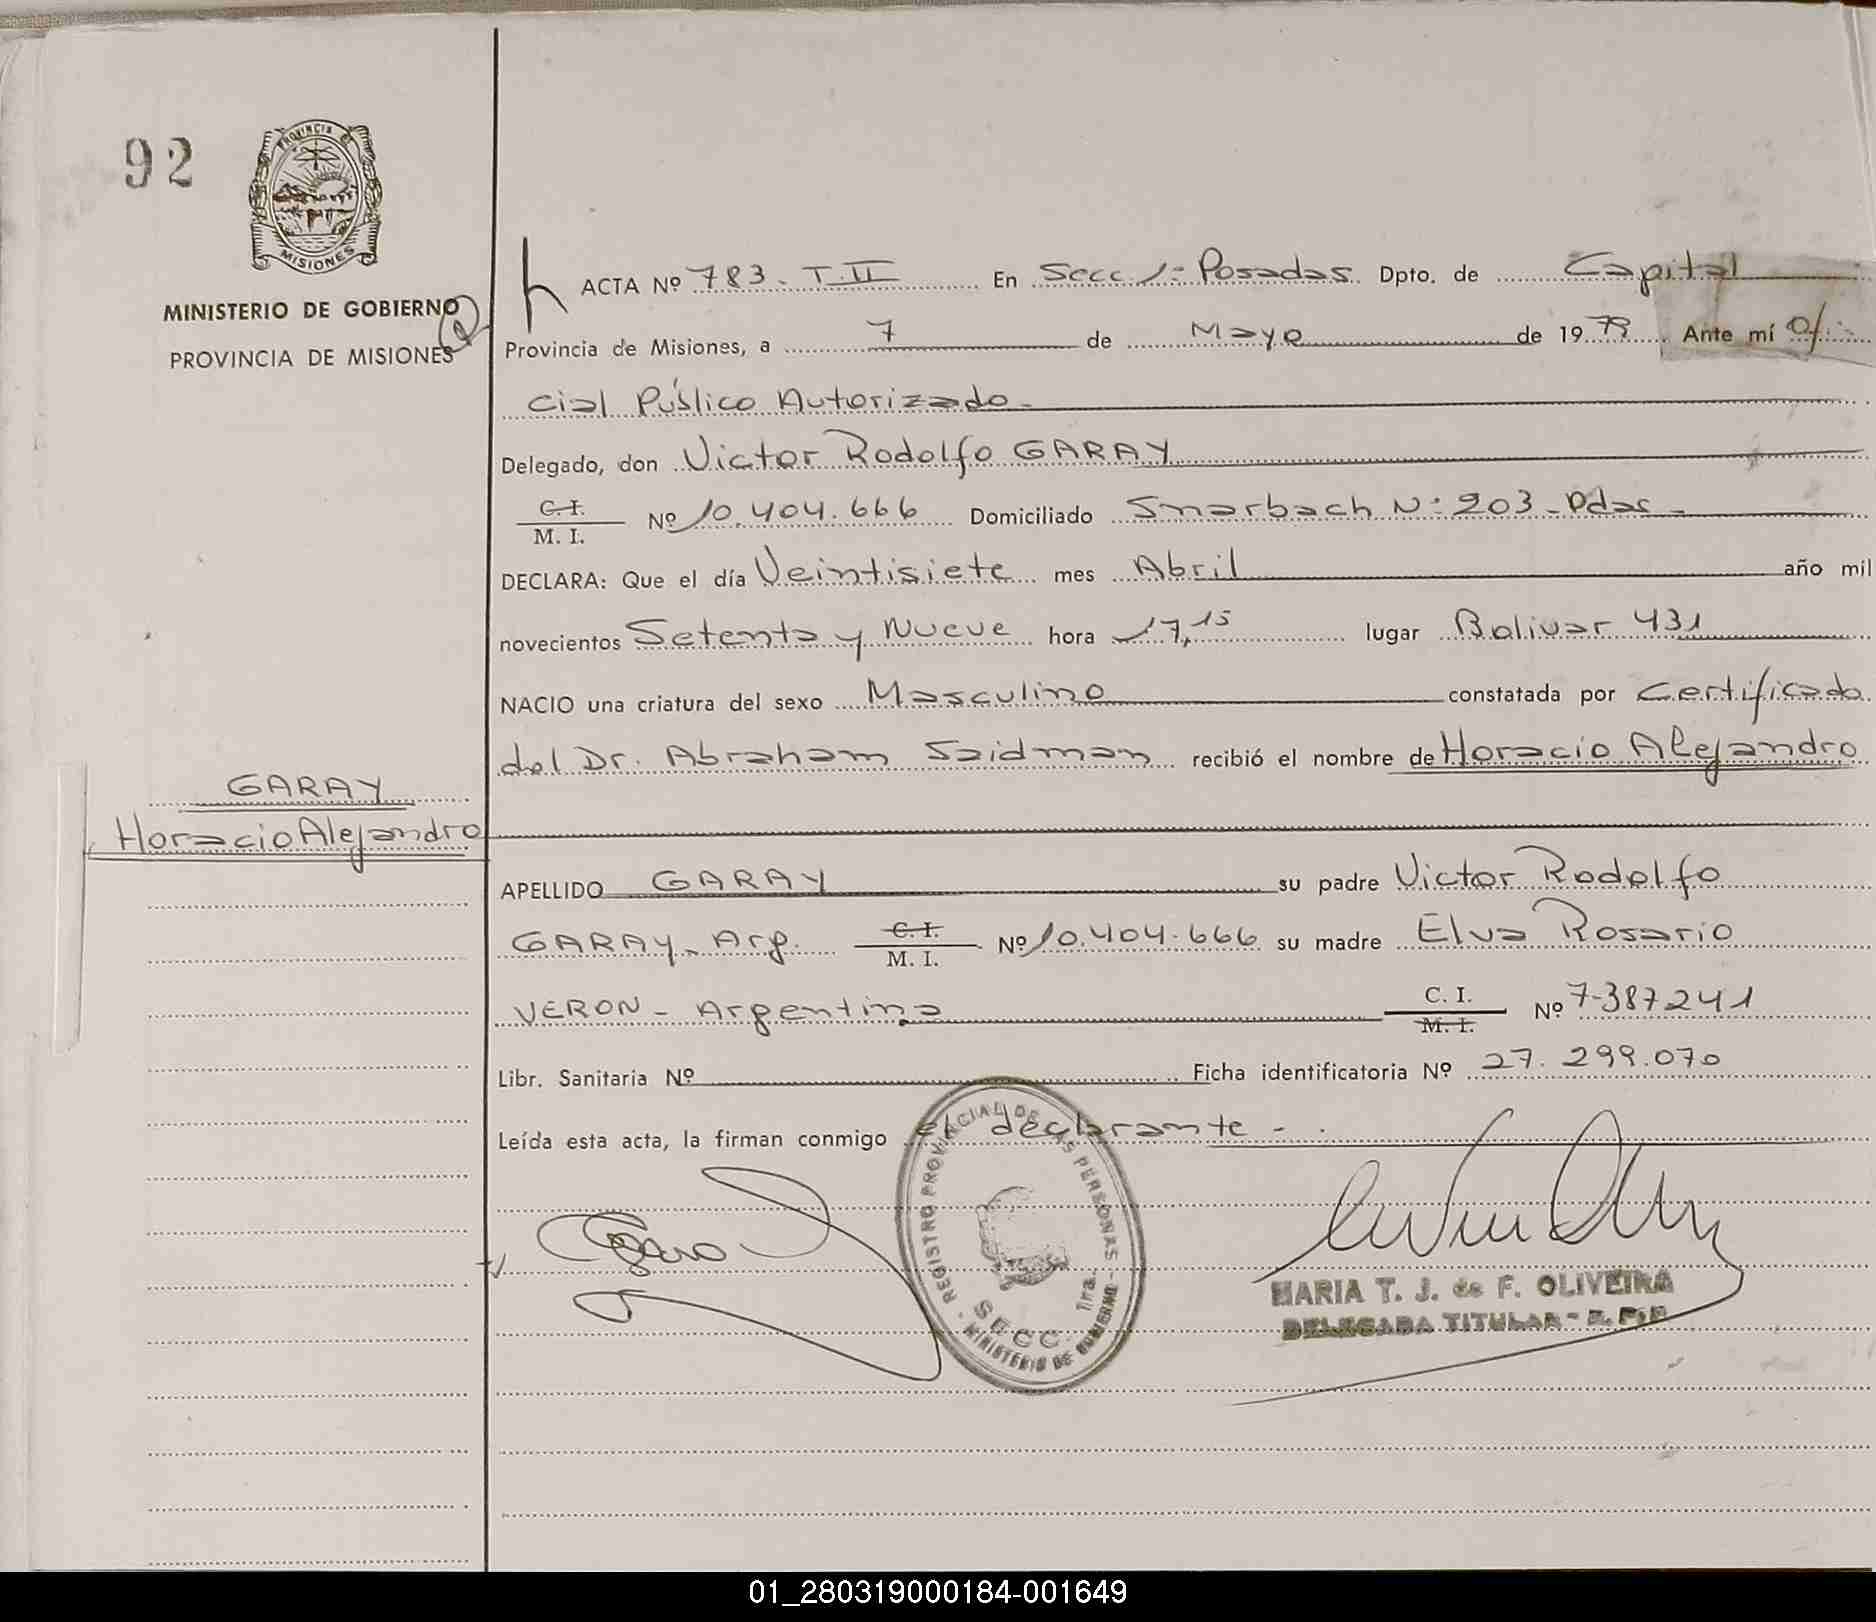 92
PROVINCIA DE
MISIONES
MINISTERIO DE GOBIERNO
PROVINCIA DE MISIONES
ACTA Nº 783 - T. II En Secc. 1ª Posadas Dpto. de Capital
Provincia de Misiones, a 7 de Mayo de 1979 Ante mí Ofi-
cial Público Autorizado -
Delegado, don Victor Rodolfo GARAY
C. I.
M. I. Nº 10.404.666 Domiciliado Smarbach Nº 203 - Pdas -
DECLARA: Que el día Veintisiete mes Abril año mil
novecientos Setenta y Nueve hora 17,15 lugar Bolivar 431
NACIO una criatura del sexo Masculino constatada por Certificado
del Dr. Abraham Saidman recibió el nombre de Horacio Alejandro
GARAY
Horacio Alejandro
APELLIDO GARAY su padre Victor Rodolfo
GARAY - Arg. C. I. M. I. Nº 10.404.666 su madre Elva Rosario
VERON - Argentina C. I. M. I. Nº 7-387241
Libr. Sanitaria Nº Ficha identificatoria Nº 27.299.070
Leída esta acta, la firman conmigo el declarante -
REGISTRO PROVINCIAL DE LAS PERSONAS - MINISTERIO DE GOBIERNO -
SECC. 1ra.
MARIA T. J. de F. OLIVEIRA
DELEGADA TITULAR - R. P. P.
01_280319000184-001649